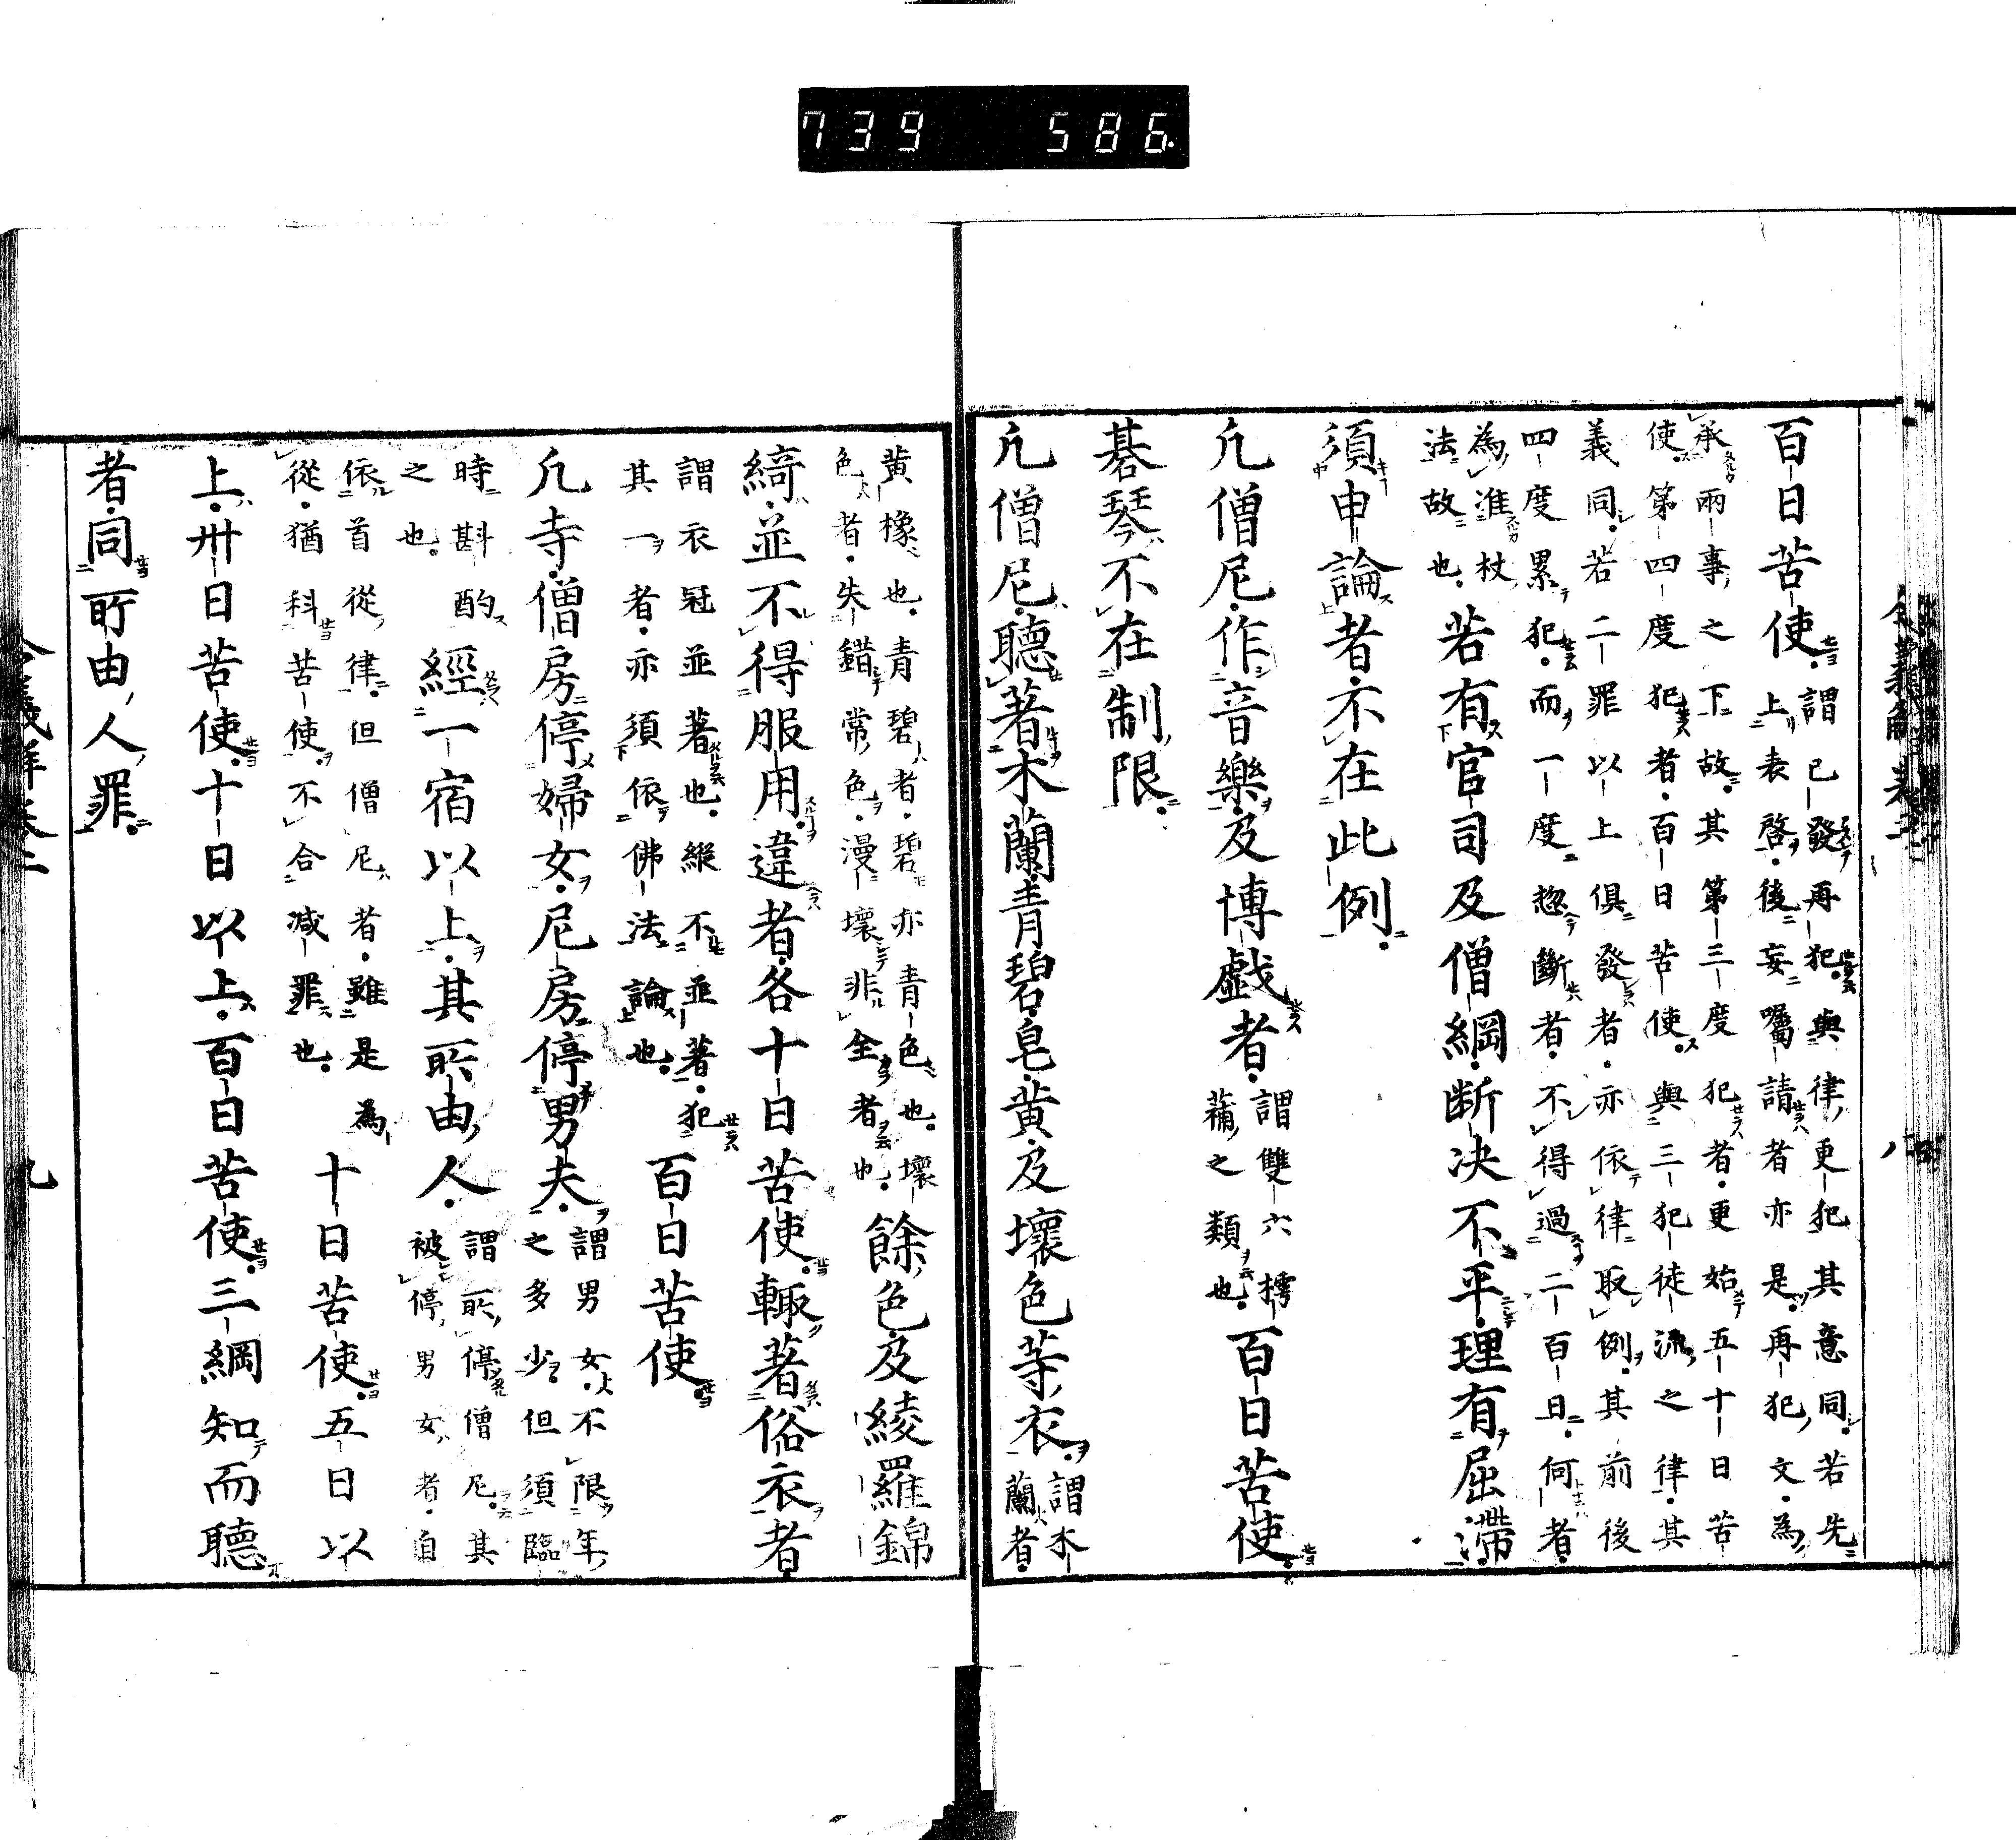 739 586
百日苦使謂已發再犯與律更犯其意同若先
上表啓後妄囑請者亦是再犯文為
承兩事之下故其第三度犯者更始五十日苦
使第四度犯者百日苦使與三犯徒流之律其
義同若二罪以上俱發者亦依律取例其前後
四度累犯而一度惣斷者不得過二百日何者
為准杖
法故也若有官司及僧綱断決不平理有屈滯
須申論者不在此例
凢僧尼作音樂及博戯者謂雙六樗
蒱之類也百日苦使
碁琴不在制限
凢僧尼聽著木蘭青碧皂黄及壞色等衣謂木
蘭者
黄橡也青碧者碧亦青色也壞
色者失錯常色漫壞非全者也餘色及綾羅錦
綺並不得服用違者各十日苦使輙著俗衣者
謂衣冠並著也縱不並著犯
其一者亦須依佛法論也百日苦使
凢寺僧房停婦女尼房停男夫謂男女不限年
之多少但須臨
時斟酌
之也經一宿以上其所由人謂所停僧尼其
被停男女者自
依首從律但僧尼者雖是為
從猶科苦使不合減罪也十日苦使五日以
上卅日苦使十日以上百日苦使三綱知而聽
者同所由人罪
九